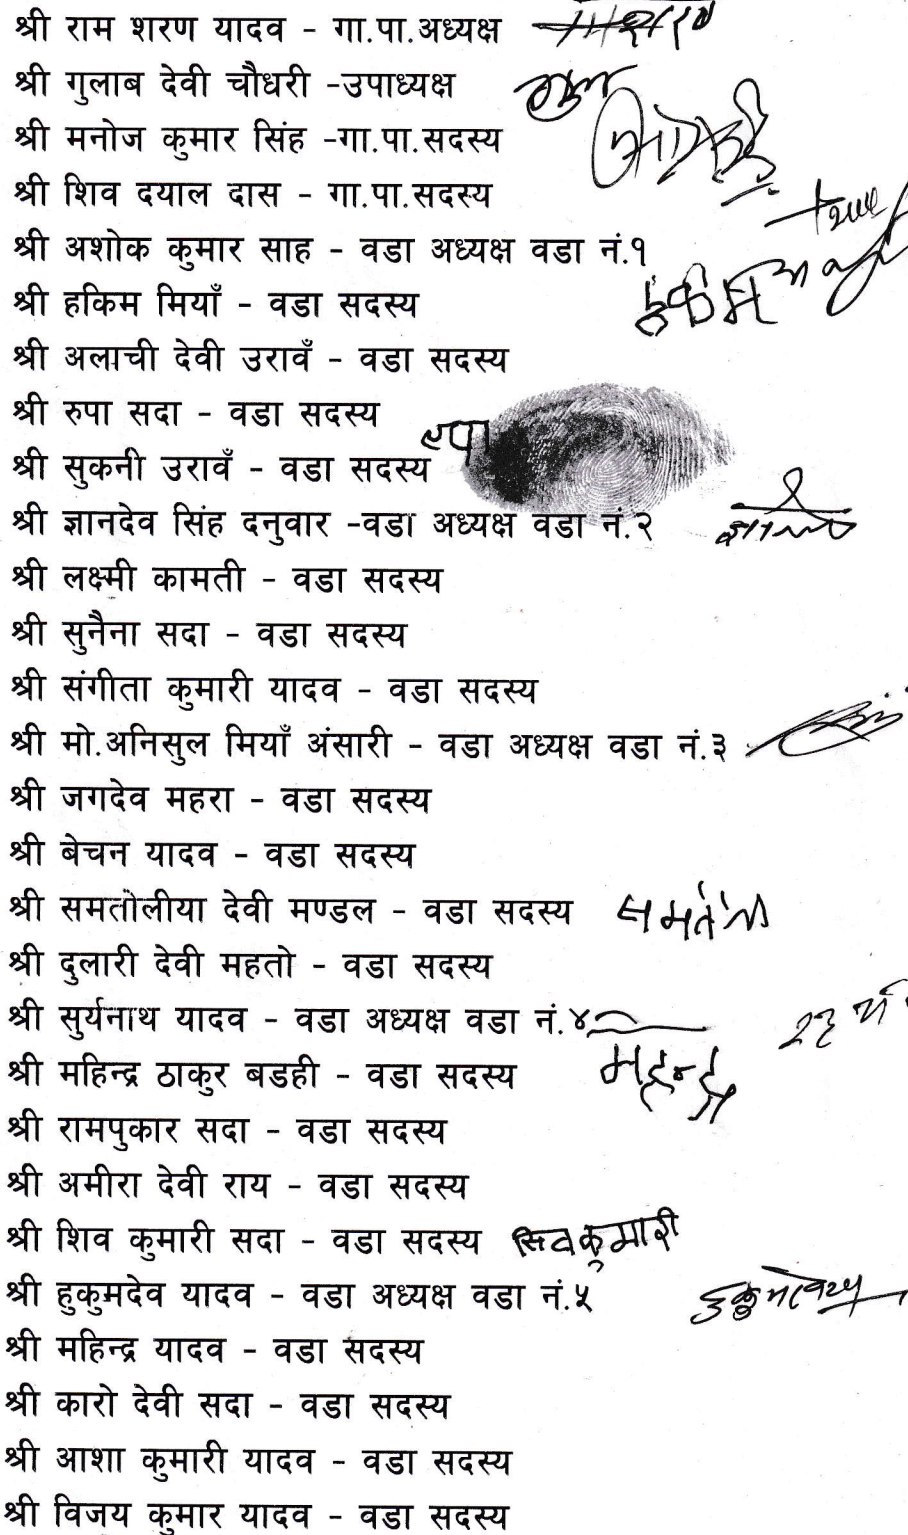 श्री राम शरण यादव - गा.पा.अध्यक्ष
श्री गुलाब देवी चौधरी -उपाध्यक्ष
श्री मनोज कुमार सिंह -गा.पा.सदस्य
श्री शिव दयाल दास - गा.पा.सदस्य
श्री अशोक कुमार साह - वडा अध्यक्ष वडा नं.१
श्री हकिम मियाँ - वडा सदस्य
श्री अलाची देवी उरावँ - वडा सदस्य
श्री रुपा सदा - वडा सदस्य
श्री सुकनी उरावँ - वडा सदस्य
श्री ज्ञानदेव सिंह दनुवार -वडा अध्यक्ष वडा नं.२
श्री लक्ष्मी कामती - वडा सदस्य
श्री सुनैना सदा - वडा सदस्य
श्री संगीता कुमारी यादव - वडा सदस्य
श्री मो.अनिसुल मियाँ अंसारी - वडा अध्यक्ष वडा नं.३
श्री जगदेव महरा - वडा सदस्य
श्री बेचन यादव - वडा सदस्य
श्री समतोलीया देवी मण्डल - वडा सदस्य
श्री दुलारी देवी महतो - वडा सदस्य
श्री सुर्यनाथ यादव - वडा अध्यक्ष वडा नं.४
श्री महिन्द्र ठाकुर बडही - वडा सदस्य
श्री रामपुकार सदा - वडा सदस्य
श्री अमीरा देवी राय - वडा सदस्य
श्री शिव कुमारी सदा - वडा सदस्य सिवकुमारी
श्री हुकुमदेव यादव - वडा अध्यक्ष वडा नं.५
श्री महिन्द्र यादव - वडा सदस्य
श्री कारो देवी सदा - वडा सदस्य
श्री आशा कुमारी यादव - वडा सदस्य
श्री विजय कुमार यादव - वडा सदस्य